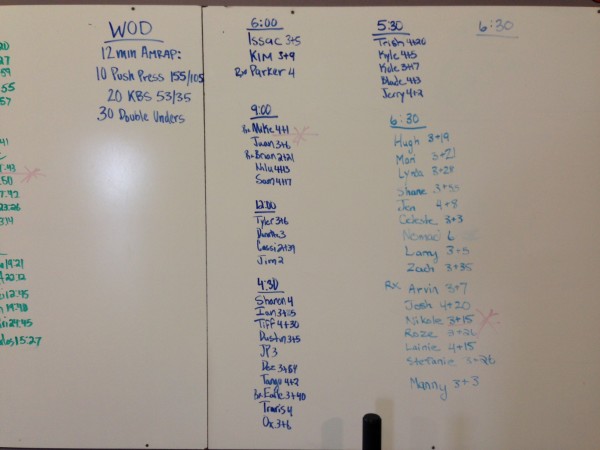 WOD
12 min AMRAP:
10 Push Press 155/105
20 KBS 53/35
30 Double Unders
55
57
41
7:42
23:26
19:21
22:32
12:45
19:40
24:45
15:27
6:00
Issac 3+5
KIM 3+9
Rx Parker 4
9:00
Rx Mike 4+1
Juan 3+6
Rx Brian 2+21
Nilu 4+13
Sam 4+17
12:00
Tyler 3+6
3
Cassi 2+39
Jim 2
4:30
Sharon 4
Ian 3+35
Tiff 4+30
Dustin 3+5
JP 3
Doc 3+64
Tanya 4+2
Rx Earle 3+40
Travis 4
Ox 3+6
5:30
Trish 4+20
Kyle 4+5
Kole 3+17
Blade 4+3
Jerry 4+2
6:30
6:30
Hugh 3+19
Mari 3+21
Lynda 3+28
Shane 3+35
Jen 4+8
Celeste 3+3
Nomad 6
Larry 3+5
Zach 3+35
Rx Arvin 3+7
Josh 4+20
Nikole 3+15
Roze 3+26
Lainie 4+15
Stefanie 3+26
Manny 3+3